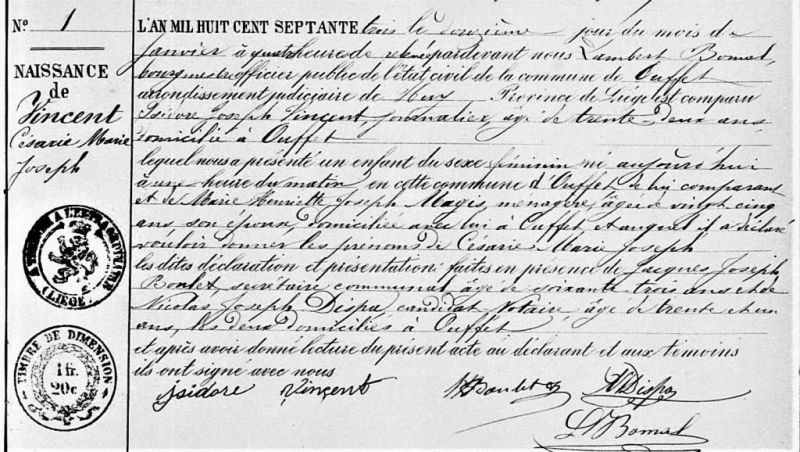 N° 1
NAISSANCE
de
Vincent
Césarie Marie
Joseph
A L'EXTRAORDINAIRE
(LIEGE)
TIMBRE DE DIMENSION
1 fr.
20c
L'AN MIL HUIT CENT SEPTANTE trois le douzième jour du mois de
Janvier à quatre heure de relevé pardevant nous Lambert Bomal,
bourgmestre officier public de l'état civil de la commune de Ouffet
arrondissement judiciaire de Huy Province de Liége est comparu
Isidore Joseph Vincent journalier, âgé de trente deux ans
domicilié à Ouffet
lequel nous a présenté un enfant du sexe féminin né aujourd'hui
à une heure du matin, en cette commune d'Ouffet de lui comparant
et de Marie Henriette Joseph Magis, menagère, âgée de vingt cinq
ans son épouse, domiciliée avec lui à Ouffet, et auquel il a déclaré
vouloir donner les prénoms de Césarie Marie Joseph
les dites déclaration et présentation faites en présence de Jacques Joseph
Boulet, secrétaire communal, âgé de soixante trois ans et de
Nicolas Joseph Dispa, candidat Notaire, âgé de trente et un
ans, les deux domiciliés à Ouffet
et après avoir donné lecture du présent acte au déclarant et aux témoins
ils ont signé avec nous
isidore Vincent Boulet Dispa
L Bomal